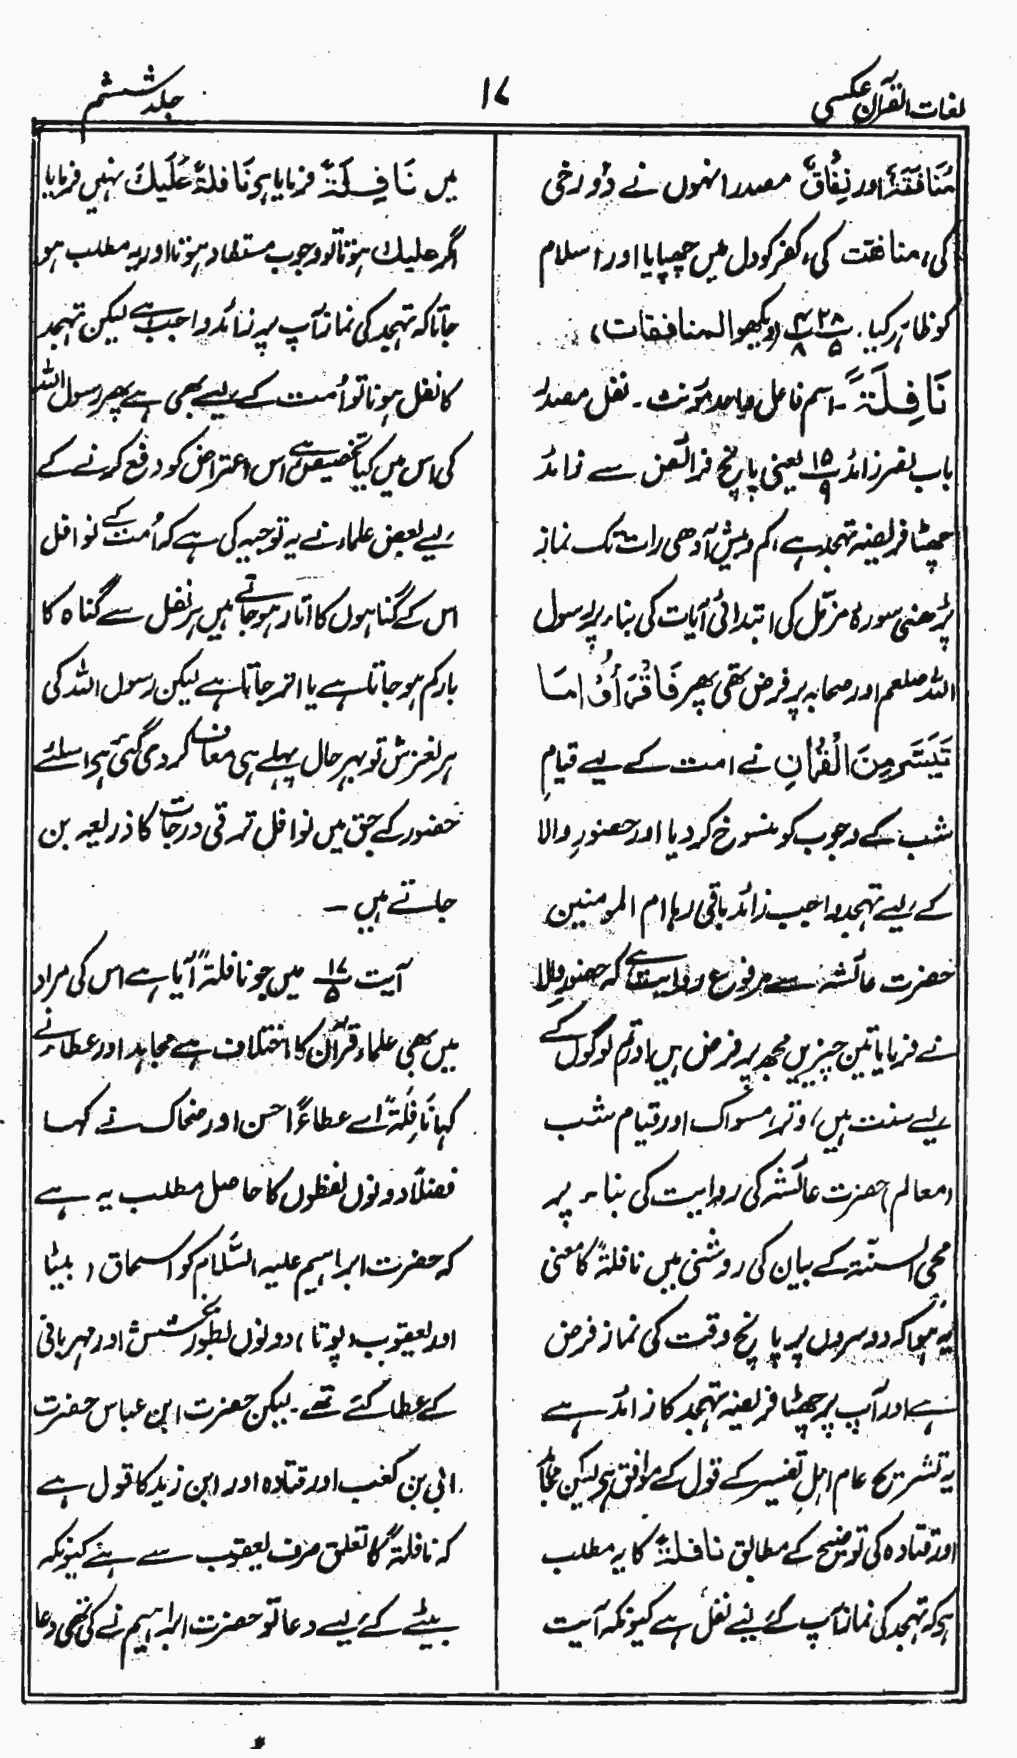 لغات القرآن عکسی
۱۷
جلد ششم
مُنَافَقَۃٌ اور نِفَاقٌ مصدر انہوں نے دُورخی
کی، منافقت کی، کفر کو دل میں چھپایا اور اسلام
کو ظاہر کیا۔ ۲۸/۵ ۴/۸ (دیکھو المنافقات)
نَافِلَۃً۔ اسم فاعل واحد مؤنث۔ نفل مصدر
باب نصر زائد ۱۵/۹ یعنی پانچ فرائض سے زائد
چھٹا فریضہ تہجد ہے، کم و بیش آدھی رات تک نماز
پڑھنی سورۂ مزمل کی ابتدائی آیات کی بناء پر رسول
اللہ صلعم اور صحابہ پر فرض تھی پھر فَاقْرَأُوْا مَا
تَیَسَّرَ مِنَ الْقُرْاٰنِ نے امت کے لیے قیامِ
شب کے وجوب کو منسوخ کر دیا اور حضورِ والا
کے لیے تہجد واجب زائد باقی رہا ام المومنین
حضرت عائشہ سے مرفوع روایت ہے کہ حضور والا
نے فرمایا تین چیزیں مجھ پر فرض ہیں اور تم لوگوں کے
لیے سنت ہیں، وتر، مسواک اور قیام شب
(معالم) حضرت عائشہ کی روایت کی بناء پر
محی السنۃ کے بیان کی روشنی میں نافلۃً کا معنی
یہ ہوا کہ دوسروں پر پانچ وقت کی نماز فرض
ہے اور آپ پر چھٹا فریضہ تہجد کا زائد ہے
یہ تشریح عام اہلِ تفسیر کے قول کے موافق ہے لیکن مجاہد
اور قتادہ کی توضیح کے مطابق نافلۃً کا یہ مطلب
ہے کہ تہجد کی نماز آپ کے لیے نفل ہے کیونکہ آیت
میں نَافِلَۃً فرمایا ہے نَافِلَۃً عَلَیْکَ نہیں فرمایا
اگر علیک ہوتا تو وجوب مستفاد ہوتا اور یہ مطلب ہو
جاتا کہ تہجد کی نماز آپ پر زائد واجب ہے لیکن تہجد
کا نفل ہونا تو اُمت کے لیے بھی ہے پھر رسول اللہ
کی اس میں کیا تخصیص ہے اس اعتراض کو رفع کرنے کے
لیے بعض علماء نے یہ توجیہ کی ہے کہ اُمت کے نوافل
اس کے گناہوں کا اتار ہو جاتے ہیں ہر نفل سے گناہ کا
بار کم ہو جاتا ہے یا اتر جاتا ہے لیکن رسول اللہ کی
ہر لغزش تو بہر حال پہلے ہی معاف کر دی گئی ہے اسلئے
حضور کے حق میں نوافل ترقی درجات کا ذریعہ بن
جاتے ہیں۔
آیت ۱۷/۵ میں جو نافلۃً آیا ہے اس کی مراد
میں بھی علماء قرآن کا اختلاف ہے مجاہد اور عطاء نے
کہا نَافِلَۃً اے عطاءً احسن اور ضحاک نے کہا
فضلاً دونوں لفظوں کا حاصل مطلب یہ ہے
کہ حضرت ابراہیم علیہ السَّلام کو اسحاق (بیٹا)
اور یعقوب (پوتا) دونوں بطور بخشش اور مہربانی
کے عطا کئے تھے۔ لیکن حضرت ابن عباس حضرت
ابی بن کعب اور قتادہ اور ابن زید کا قول ہے
کہ نافلۃً کا تعلق صرف یعقوب سے ہے کیونکہ
بیٹے کے لیے دعا تو حضرت ابراہیم نے کی تھی دعا